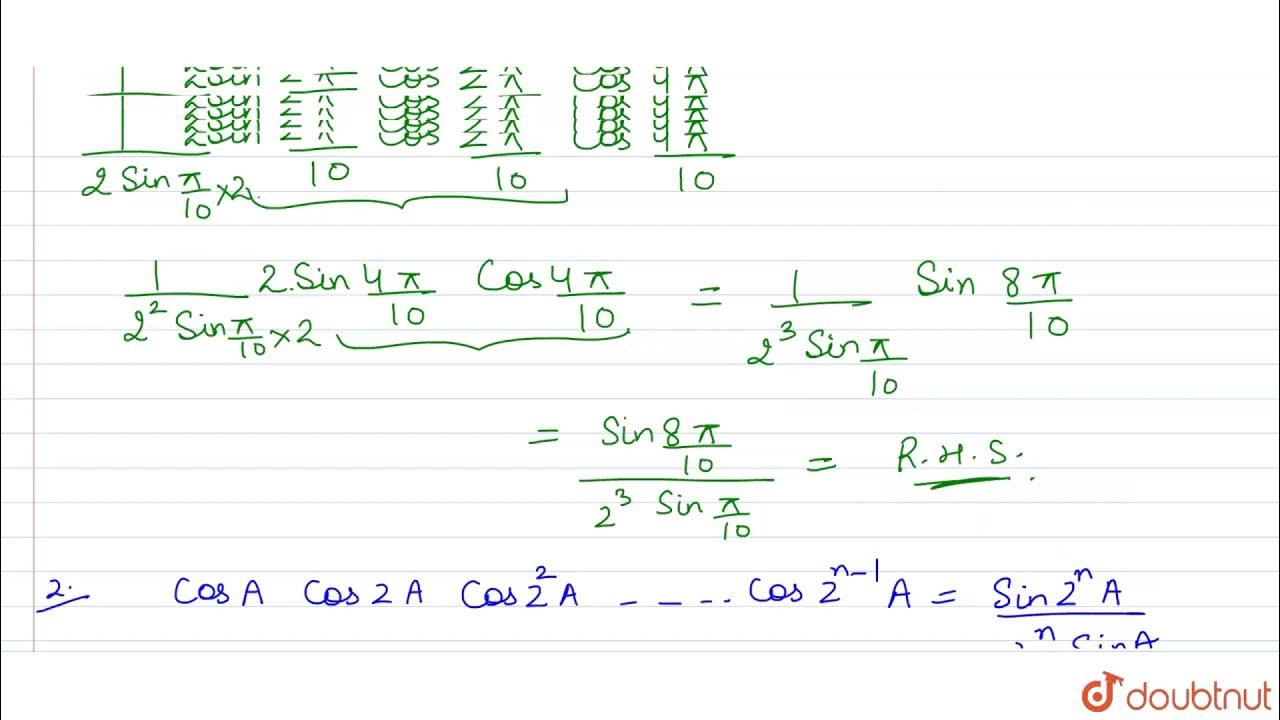 1 2Sin 2π Cos 2π Cos 4π
2 Sin π/10 ×2 10 10 10
1/(2² Sin π/10 ×2) 2.Sin 4π/10 Cos 4π/10 = 1/(2³ Sin π/10) Sin 8π/10
= Sin 8π/10 / (2³ Sin π/10) = R.H.S.
2. Cos A Cos 2A Cos 2²A ----- Cos 2ⁿ⁻¹ A = Sin 2ⁿ A / ⁿ Sin A
doubtnut